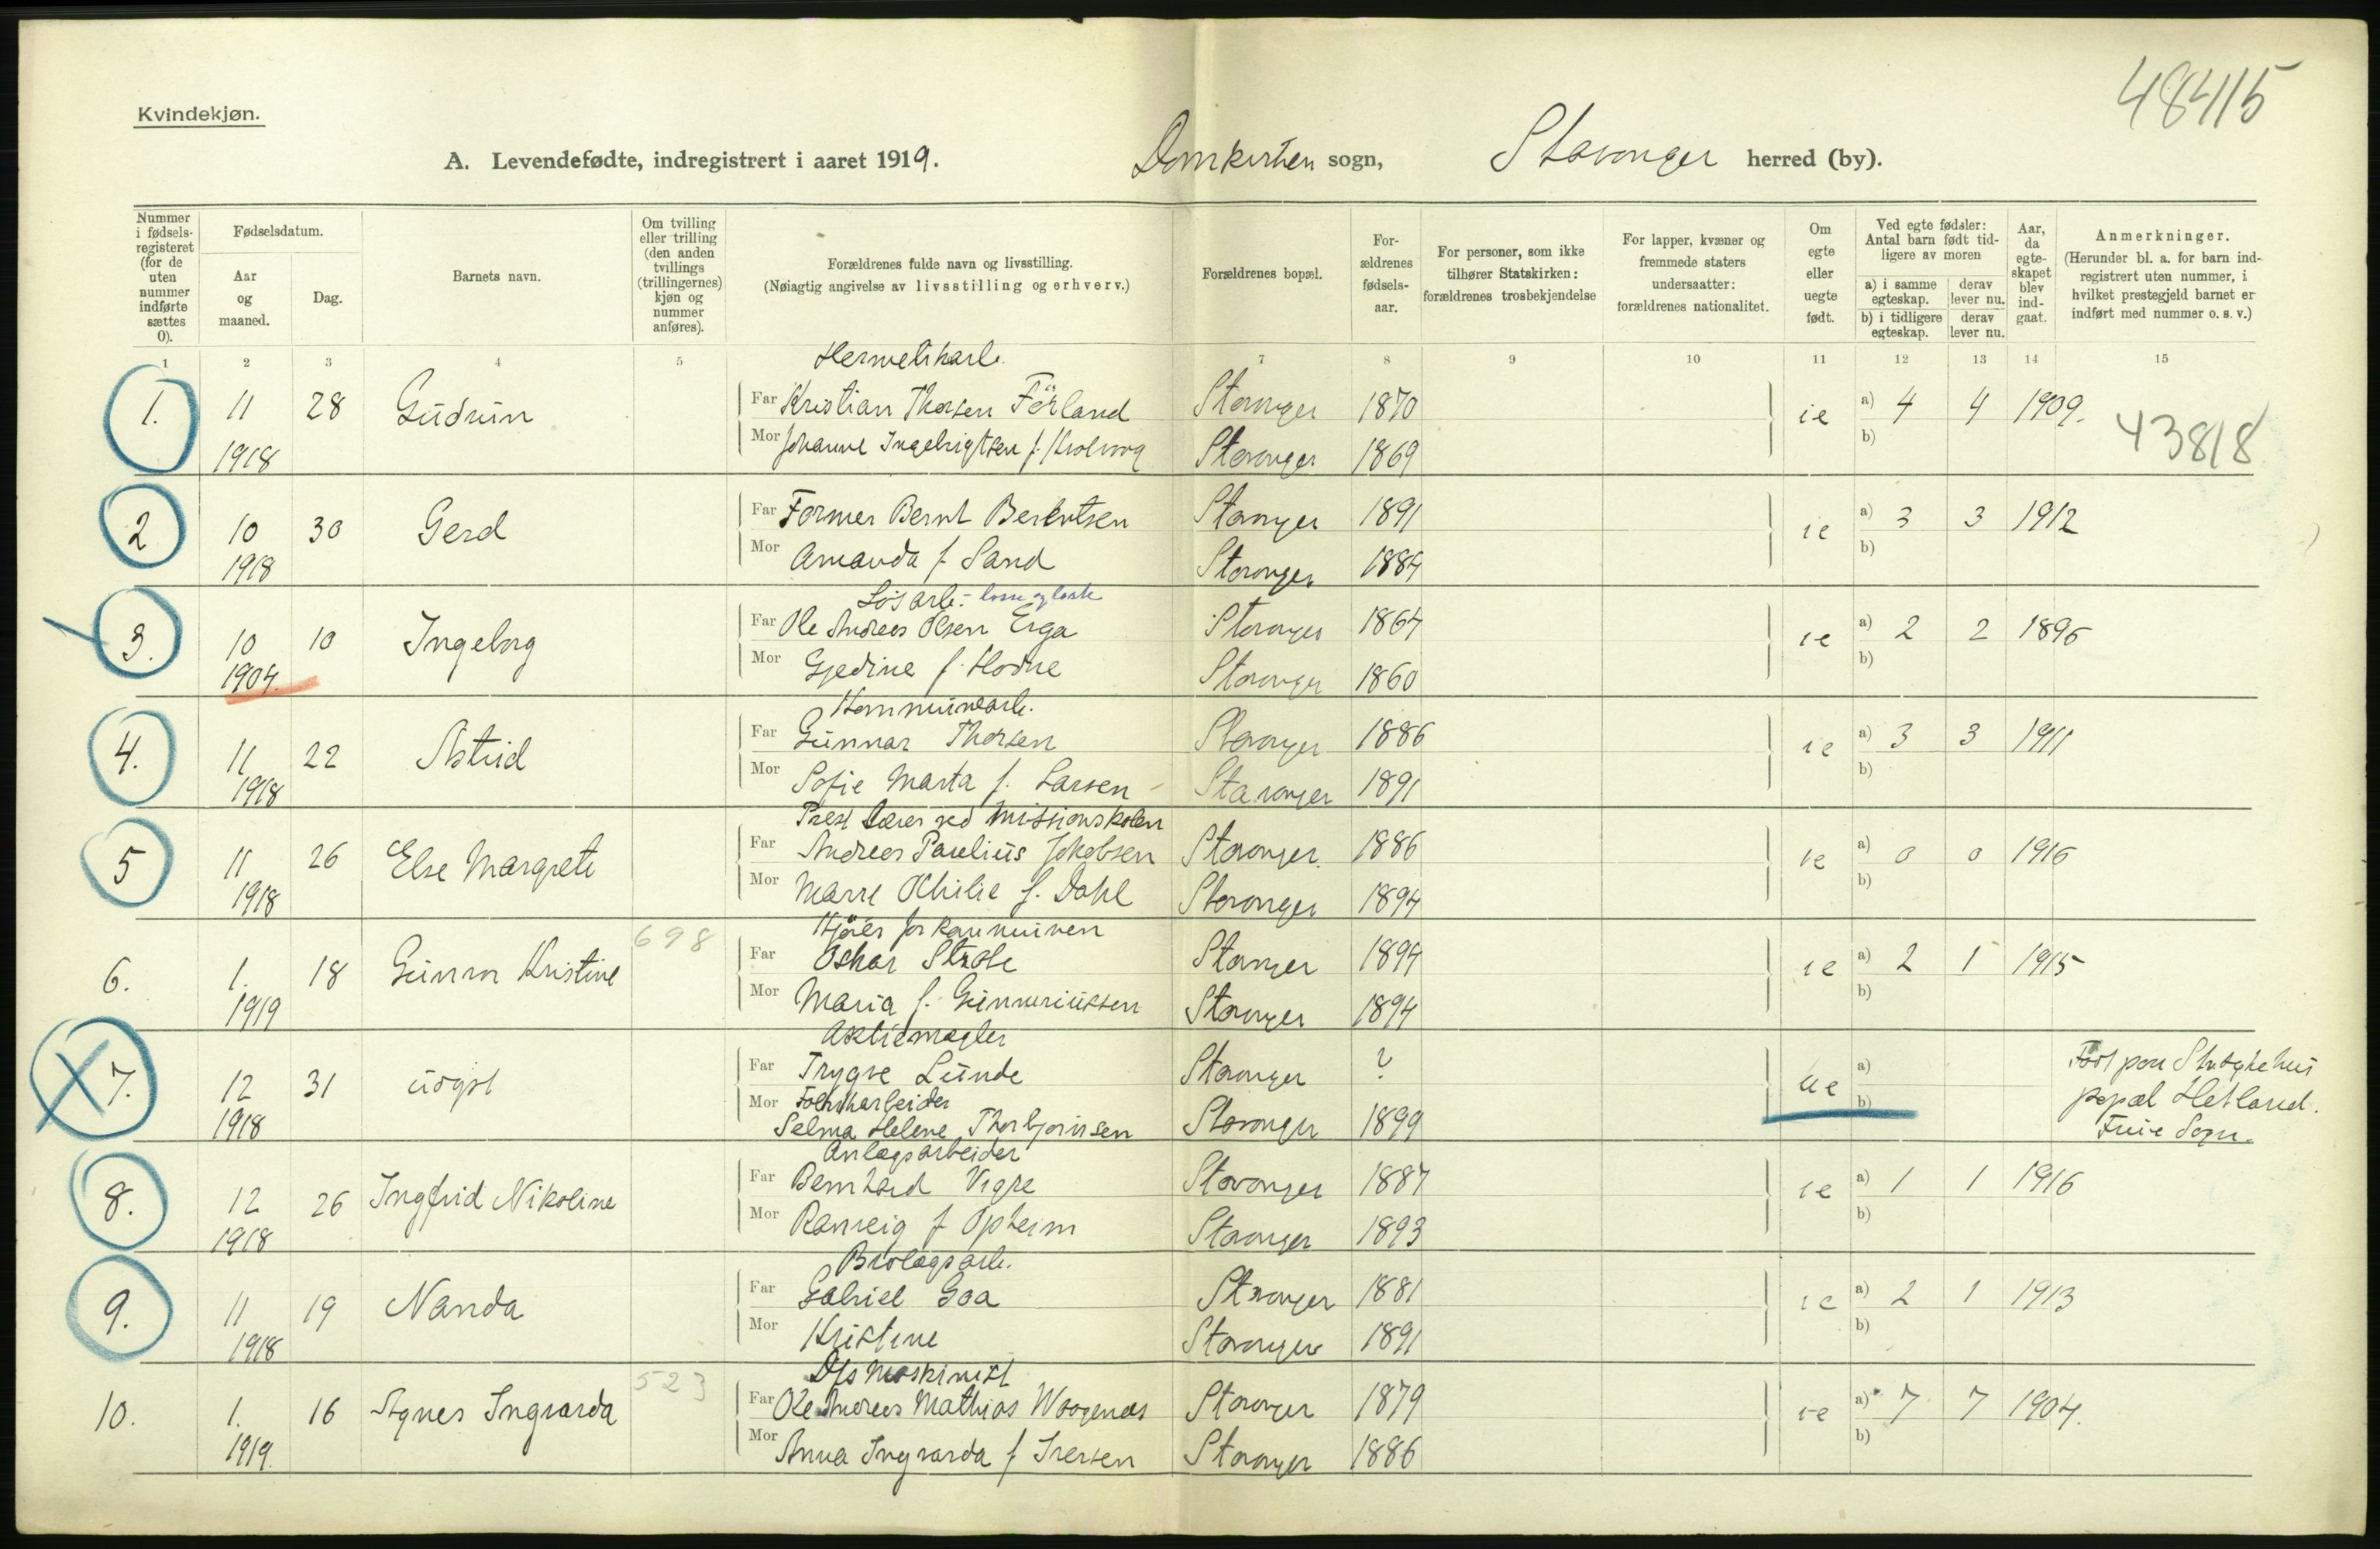 48415
Kvindekjøn.
A. Levendefødte, indregistrert i aaret 1919. Domkirken sogn, Stavanger herred (by).
Nummer i fødselsregisteret (for de uten nummer indførte sættes 0).
Fødselsdatum.
Aar og maaned.
Dag.
Barnets navn.
Om tvilling eller trilling (den anden tvillings (trillingernes) kjøn og nummer anføres).
Forældrenes fulde navn og livsstilling.
(Nøiagtig angivelse av livsstilling og erhverv.)
Forældrenes bopæl.
Forældrenes fødselsaar.
For personer, som ikke tilhører Statskirken: forældrenes trosbekjendelse
For lapper, kvæner og fremmede staters undersaatter: forældrenes nationalitet.
Om egte eller uegte født.
Ved egte fødsler: Antal barn født tidligere av moren
a) i samme egteskap. derav lever nu.
b) i tidligere egteskap. derav lever nu.
Aar, da egteskapet blev indgaat.
Anmerkninger.
(Herunder bl. a. for barn indregistrert uten nummer, i hvilket prestegjeld barnet er indført med nummer o. s. v.)
1 2 3 4 5 7 8 9 10 11 12 13 14 15
Hermetikarb.
1. 11 28 Gudrun Far Kristian Thorsen Førland Stavanger 1870 ie a) 4 4 1909.
1918 Mor Johanne Ingebrigtsen f. Stavanger 1869 b) 43818
2 10 30 Gerd Far Former Bernt Berentsen Stavanger 1891 ie a) 3 3 1912
1918 Mor Amanda f Sand Stavanger 1884 b)
Løsarb. - losse og laste
3. 10 10 Ingeborg Far Ole Andreas Olsen Erga Stavanger 1864 ie a) 2 2 1896
1904. Mor Gjedine f. Hodne Stavanger 1860 b)
Kommunearb.
4. 11 22 Astrid Far Gunnar Thorsen Stavanger 1886 ie a) 3 3 1911
1918 Mor Sofie Marta f. Larsen Stavanger 1891 b)
Prest Lærer ved Missionskolen
5 11 26 Else Margrete Far Andreas Paulius Jakobsen Stavanger. 1886 ie a) 0 0 1916
1918 Mor Marie Othilie f. Dahl Stavanger 1894 b)
Kjører for kommunen
6. 1. 18 Gunvor Kristine 698 Far Oskar Stavanger 1894 ie a) 2 1 1915
1919 Mor Maria f. Gunneriussen Stavanger 1894 b)
Aktiemægler
7. 12 31 udøpt Far Trygve Lunde Stavanger ? ue a) Født paa Stvg sykehus
Mor Fabrikarbeider bopæl Hetland.
1918 Selma Helene Thorbjørnsen Stavanger 1899 b) Frue Sogn.
Anlægsarbeider
8. 12 26 Ingfrid Nikoline Far Bernhard Vigre Stavanger 1887 ie a) 1 1 1916
1918 Mor Ranveig f Opheim Stavanger 1893 b)
Brolægsarb.
9. 11 19 Nanda Far Gabriel Goa Stavanger 1881 ie a) 2 1 1913
1918 Mor Kristine Stavanger 1891 b)
Dfs Maskinist
10. 1. 16 Agnes Ingvarda 523 Far Ole Andreas Mathias Waagenæs Stavanger 1879 ie a) 7 7 1904.
1919. Mor Anna Ingvarda f Iversen Stavanger 1886 b)